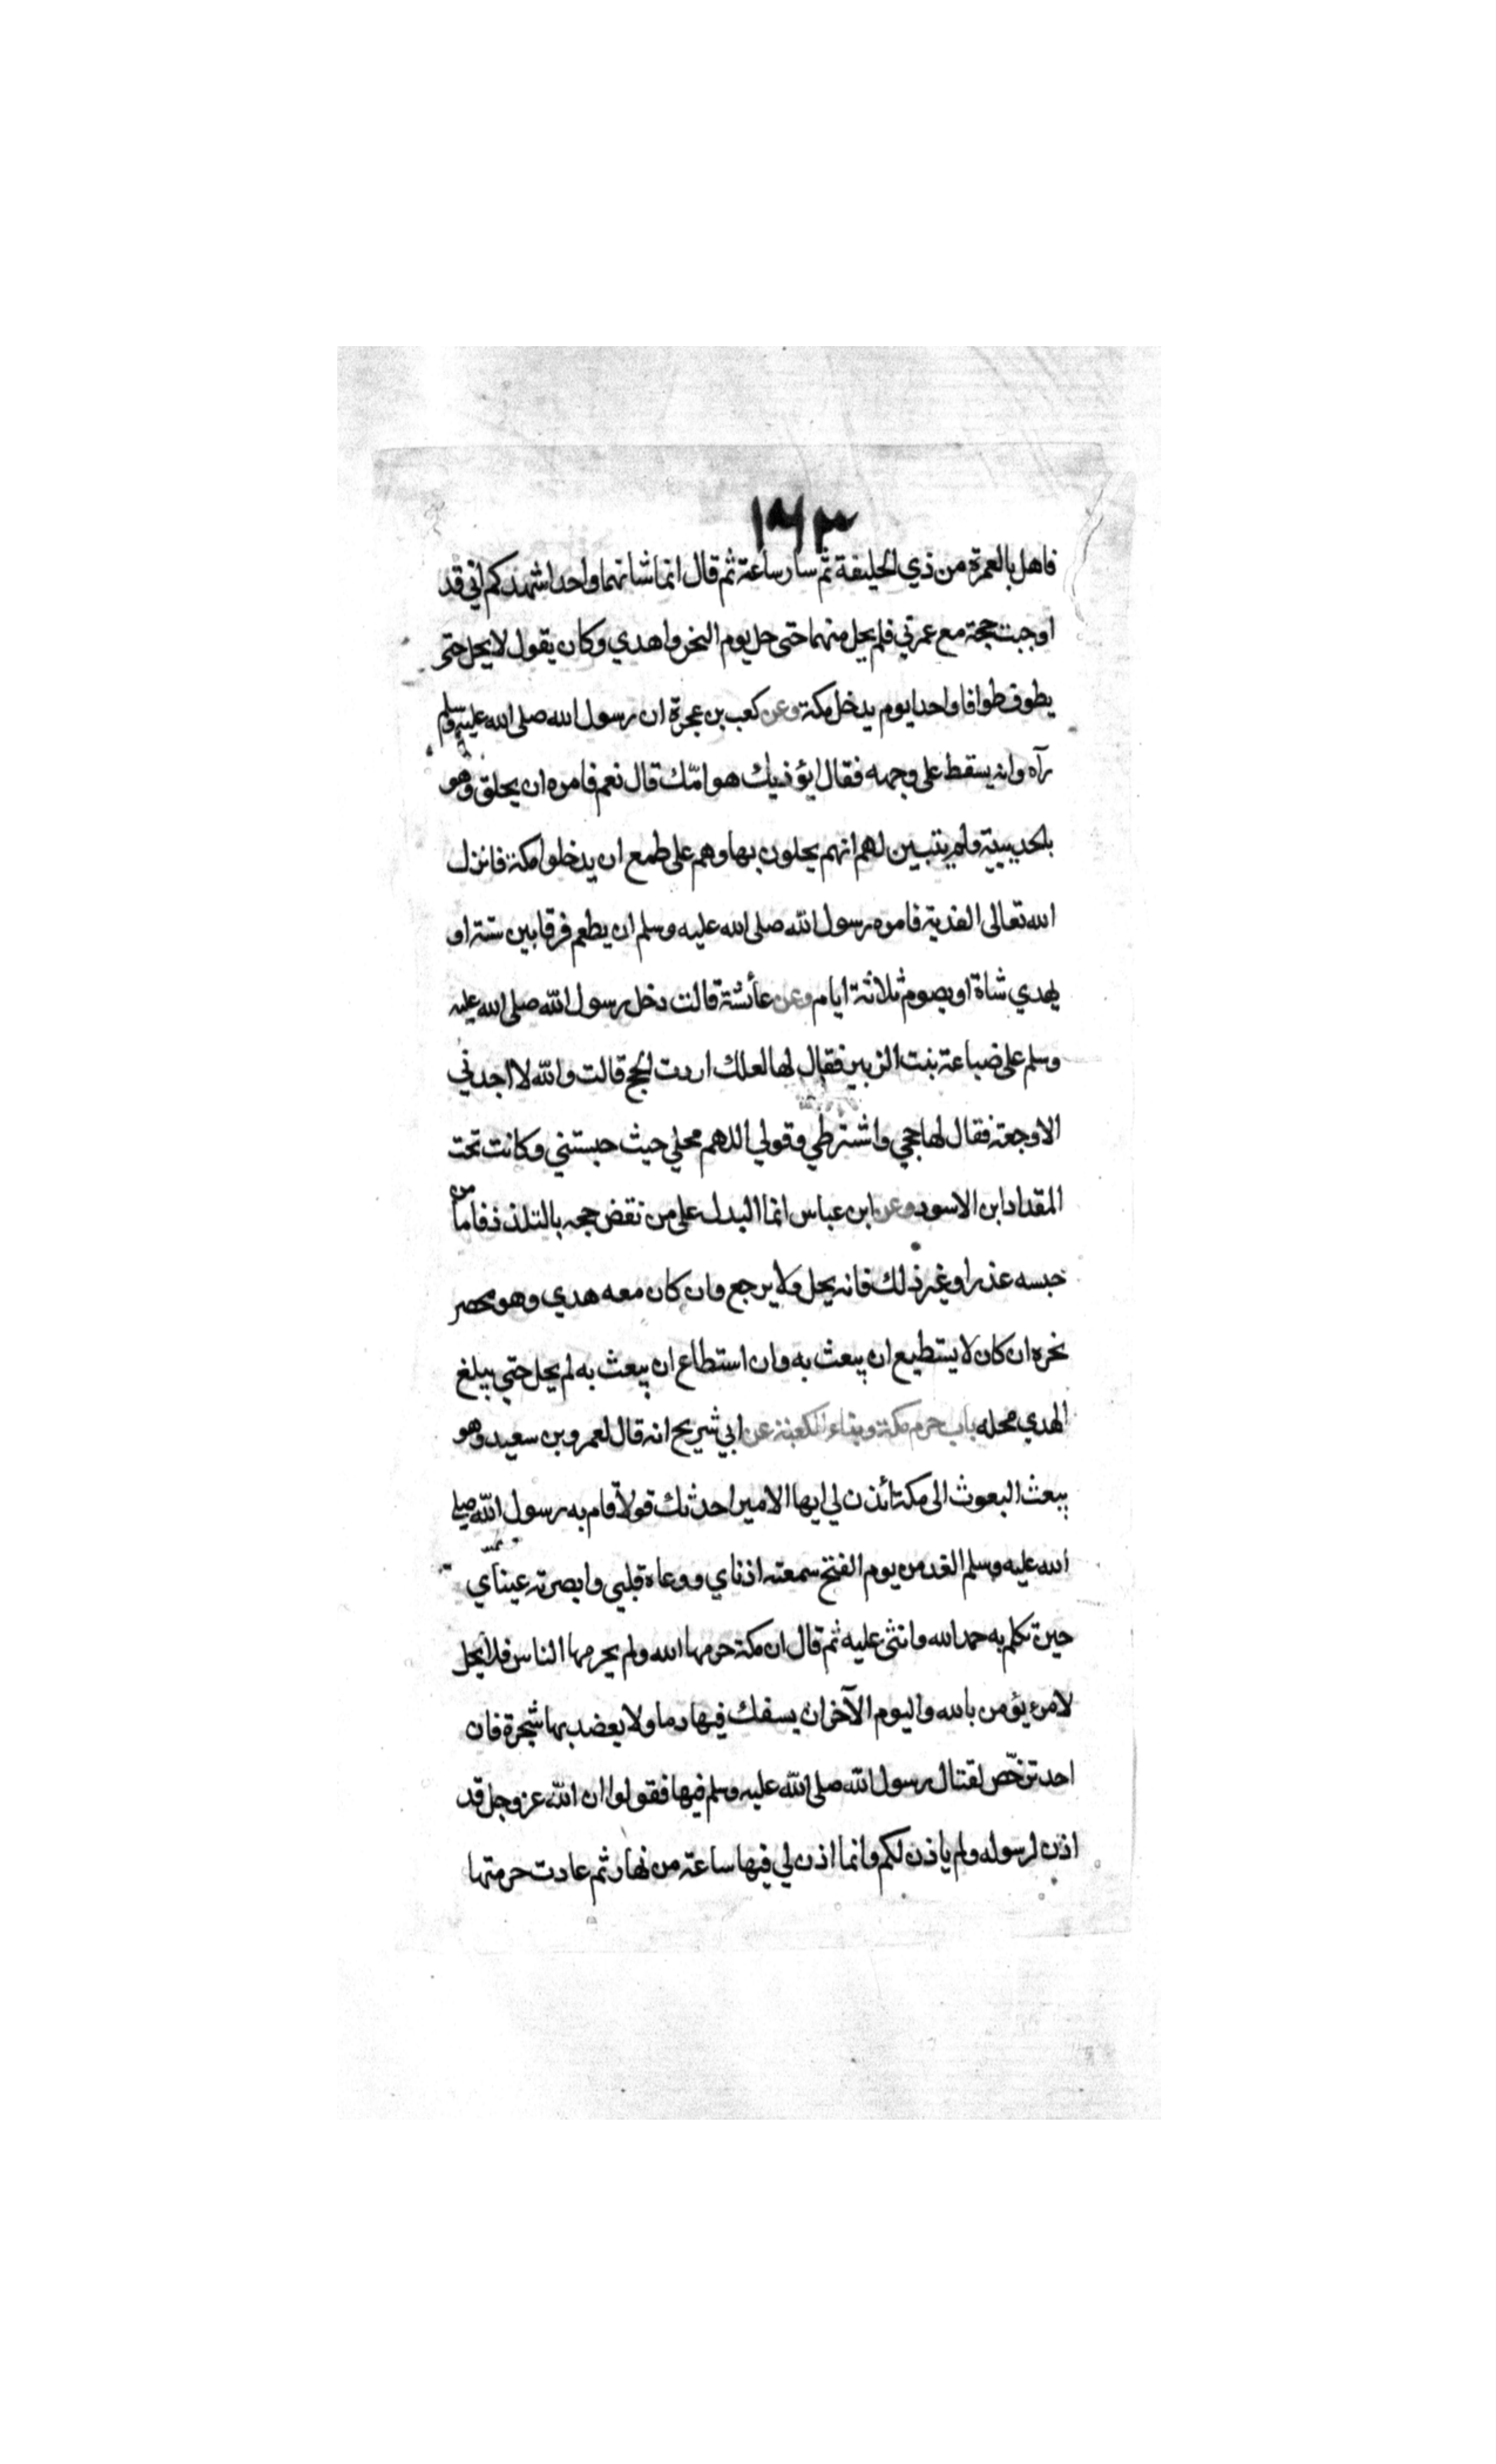 فاهل بالعمرة من ذي الحليفة ثم سار ساعة ثم قال انما شانهما واحد اشهدكم اني قد
اوجبت حجة مع عمرتي فلم يحل منهما حتى حل يوم النحر واهدي وكان يقول لا يحل حتى
يطوف طوافا واحدا يوم يدخل مكة وعن كعب بن عجرة ان رسول الله صلى الله عليه وسلم
رآه وانه يسقط على وجهه فقال ايؤذيك هوامّك قال نعم فامره ان يحلق وهو
بالحديبية ولم يتبين لهم انهم يحلون بها وهم على طمع ان يدخلوا مكة فانزل
الله تعالى الفدية فامره رسول الله صلى الله عليه وسلم ان يطعم فرقا بين ستة او
يهدي شاة او يصوم ثلاثة ايام وعن عائشة قالت دخل رسول الله صلى الله عليه
وسلم على ضباعة بنت الزبير فقال لها لعلك اردت الحج قالت والله لا اجدني
الا وجعة فقال لها حجي واشترطي وقولي اللهم محلي حيث حبستني وكانت تحت
المقداد ابن الاسود وعن ابن عباس انما البدل على من نقض حجه بالتلذذ فاما من
حبسه عذر او غير ذلك فانه يحل ولا يرجع وان كان معه هدي وهو محصر
نحره ان كان لا يستطيع ان يبعث به وان استطاع ان يبعث به لم يحل حتي يبلغ
الهدي محله باب حرم مكة وبناء الكعبة عن ابي شريح انه قال لعمرو بن سعيد وهو
يبعث البعوث الى مكة ائذن لي ايها الامير احدثك قولا قام به رسول الله صلى
الله عليه وسلم الغد من يوم الفتح سمعته اذناي ووعاه قلبي وابصرته عيناي
حين تكلم به حمد الله واثنى عليه ثم قال ان مكة حرمها الله ولم يحرمها الناس فلا يحل
لامرء يؤمن بالله واليوم الآخر ان يسفك فيها دما ولا يعضد بها شجرة فان
احد ترخّص لقتال رسول الله صلى الله عليه وسلم فيها فقولوا ان الله عز وجل قد
اذن لرسوله ولم ياذن لكم وانما اذن لي فيها ساعة من نهار ثم عادت حرمتها